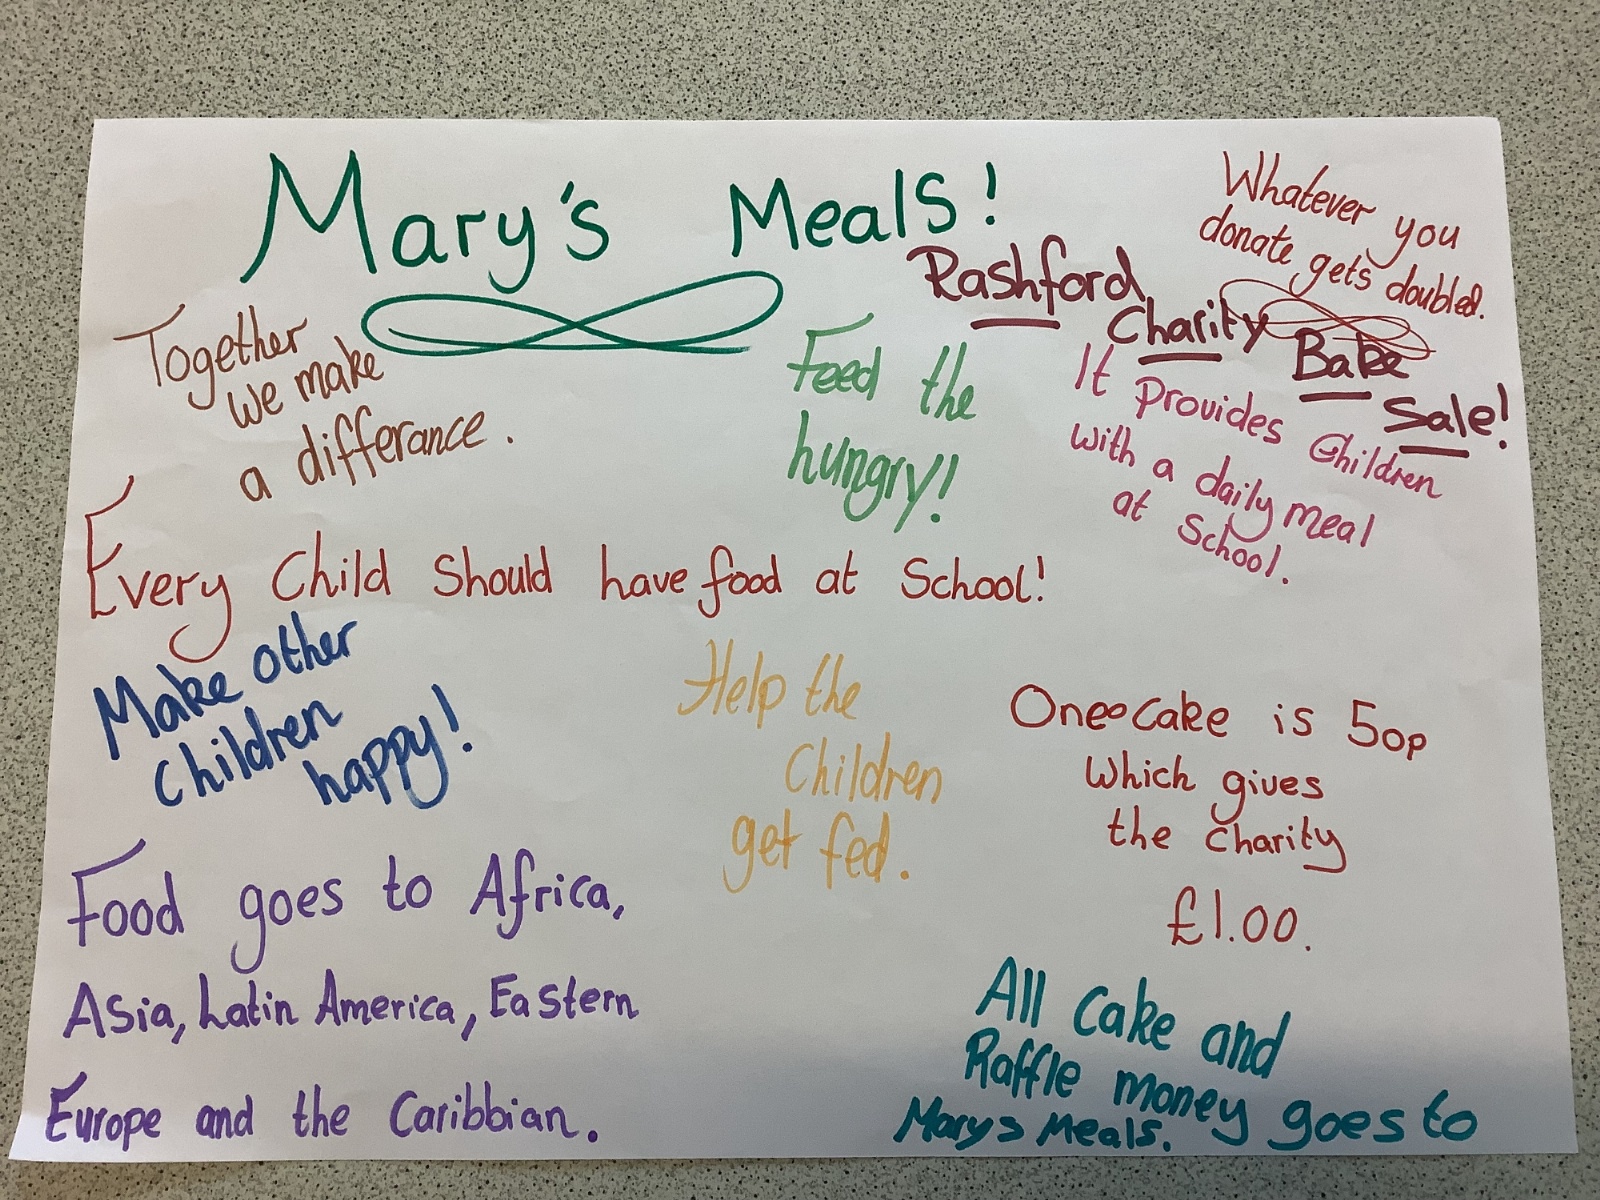 Mary's Meals!
Whatever you
donate gets doubled.
Rashford
Charity
Bake
Sale!
Together
we make
a differance.
Feed the
hungry!
It Provides Children
with a daily meal
at School.
Every Child Should have food at School!
Make other
Children
happy!
Help the
Children
get fed.
One cake is 50p
Which gives
the Charity
£1.00.
Food goes to Africa,
Asia, Latin America, Eastern
Europe and the Caribbian.
All Cake and
Raffle money goes to
Mary's Meals.